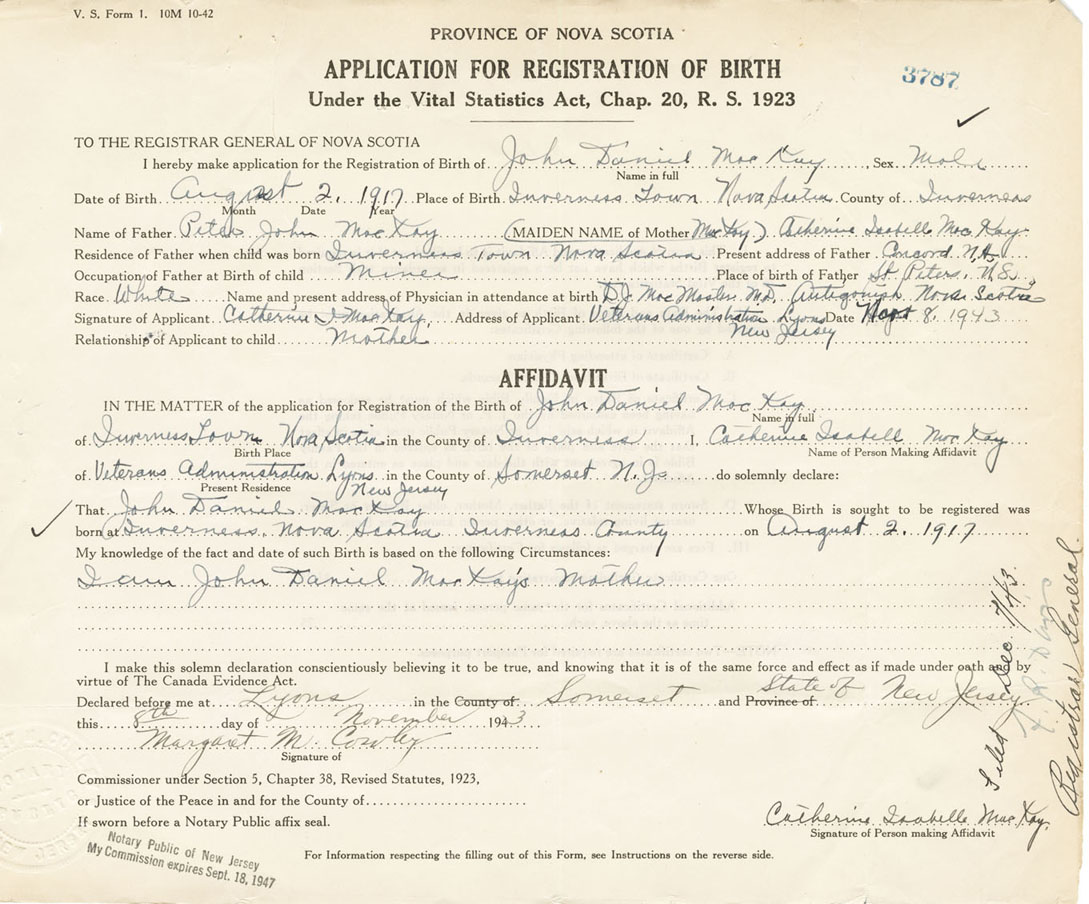 V. S. Form 1. 10M 10-42
PROVINCE OF NOVA SCOTIA
APPLICATION FOR REGISTRATION OF BIRTH
3787
Under the Vital Statistics Act, Chap. 20, R. S. 1923
TO THE REGISTRAR GENERAL OF NOVA SCOTIA
I hereby make application for the Registration of Birth of John Daniel MacKay Sex Male
Name in full
Date of Birth August 2. 1917 Place of Birth Inverness Town Nova Scotia County of Inverness
Month Date Year
Name of Father Peter John MacKay (MAIDEN NAME of Mother MacKay) Catherine Isabelle MacKay
Residence of Father when child was born Inverness Town Nova Scotia Present address of Father Concord N.H.
Occupation of Father at Birth of child Miner Place of birth of Father St. Peters, N.S.
Race White Name and present address of Physician in attendance at birth D.J. MacMaster M.D. Antigonish Nova Scotia
Signature of Applicant Catherine I MacKay Address of Applicant Veterans Administration Lyons Date 8, 1943
New Jersey
Relationship of Applicant to child Mother
AFFIDAVIT
IN THE MATTER of the application for Registration of the Birth of John Daniel MacKay
Name in full
of Inverness Town Nova Scotia in the County of Inverness I, Catherine Isabell MacKay
Birth Place Name of Person Making Affidavit
of Veterans Administration Lyons in the County of Somerset N.J. do solemnly declare:
Present Residence New Jersey
That John Daniel MacKay Whose Birth is sought to be registered was
born at Inverness, Nova Scotia Inverness County on August 2. 1917
My knowledge of the fact and date of such Birth is based on the following Circumstances:
I am John Daniel MacKay's Mother
I make this solemn declaration conscientiously believing it to be true, and knowing that it is of the same force and effect as if made under oath and by
virtue of The Canada Evidence Act.
Declared before me at Lyons in the County of Somerset and Province of State of New Jersey
this 8th day of November 1943
Margaret M. Cowley
Signature of
Commissioner under Section 5, Chapter 38, Revised Statutes, 1923,
or Justice of the Peace in and for the County of
If sworn before a Notary Public affix seal.
Catherine Isabelle MacKay
Signature of Person making Affidavit
Notary Public of New Jersey
My Commission expires Sept. 18, 1947
For Information respecting the filling out of this Form, see Instructions on the reverse side.
Filed Dec 7/43.
Registrar General.